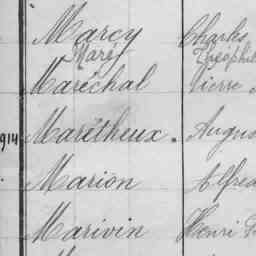 Marcy Charles
Maref Théophil
Maréchal Pierre
914 Marétheux. Augus
Marion Alfred
Marivin Henri